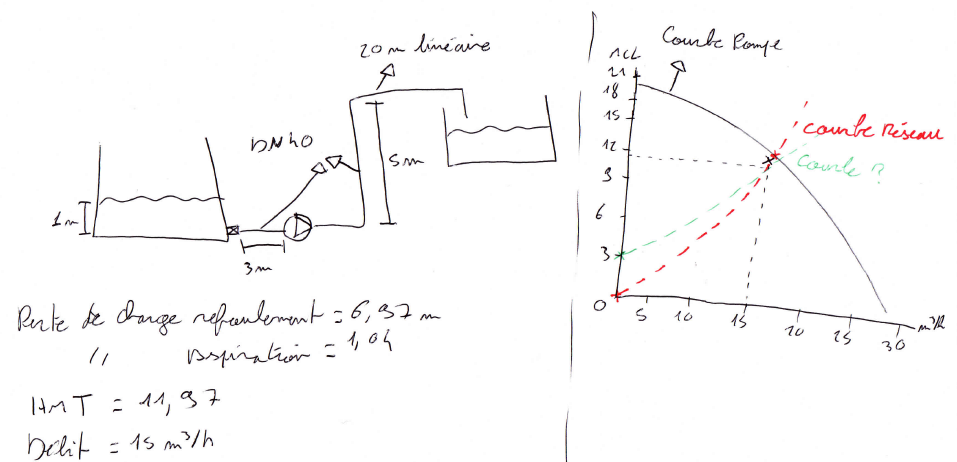 20 m linéaire
DN40
5m
1m
3m
Perte de charge refoulement = 6,97 m
// Aspiration = 1,04
HMT = 11,97
Débit = 15 m³/h
Courbe Pompe
MCL
21
18
15
12
9
6
3
0
5
10
15
20
25
30
m³/h
Courbe Réseau
Courbe ?